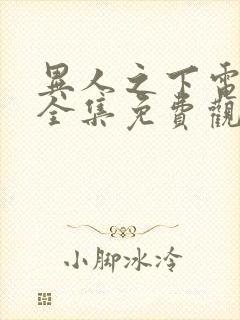 異人之下電
全集免費觀
小脚冰冷